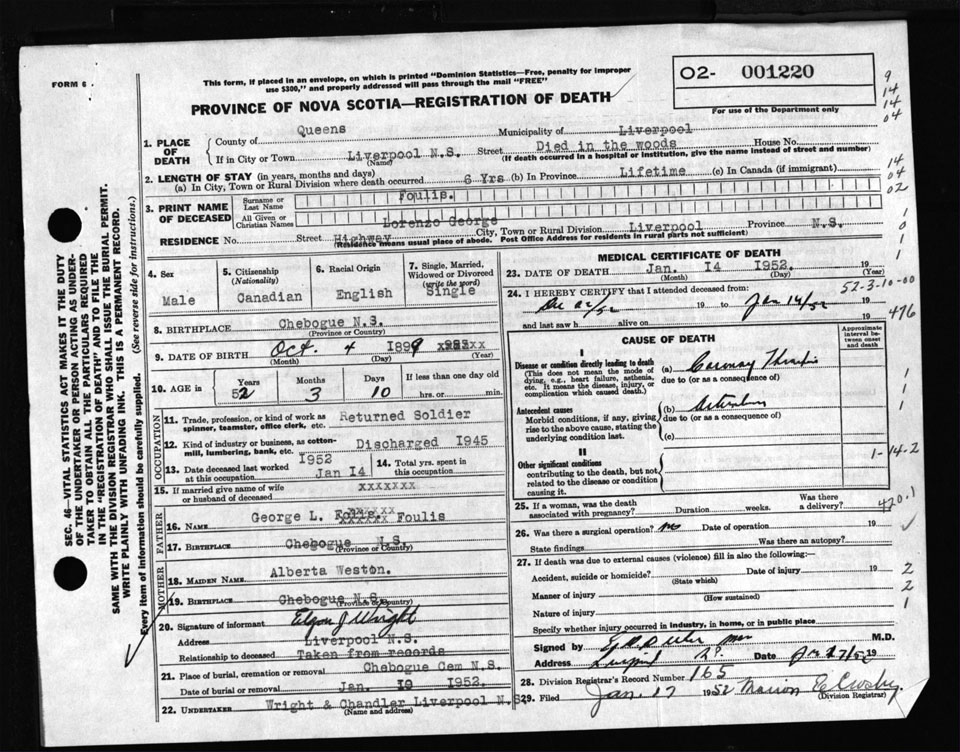 FORM 6
This form, if placed in an envelope, on which is printed "Dominion Statistics—Free, penalty for improper
use $300," and properly addressed will pass through the mail "FREE"
PROVINCE OF NOVA SCOTIA—REGISTRATION OF DEATH
O2- 001220
For use of the Department only
9
14
14
04
14
04
02
1
0
1
1
1. PLACE OF DEATH
County of Queens Municipality of Liverpool
If in City or Town Liverpool N.S. Street Died in the woods House No.
(Name) (If death occurred in a hospital or institution, give the name instead of street and number)
2. LENGTH OF STAY (in years, months and days)
(a) In City, Town or Rural Division where death occurred 6 Yrs (b) In Province Lifetime (c) In Canada (if immigrant)
3. PRINT NAME OF DECEASED
Surname or Last Name Foulis.
All Given or Christian Names Lorenzo George
RESIDENCE No. Street Highway City, Town or Rural Division Liverpool Province N.S.
(Residence means usual place of abode. Post Office Address for residents in rural parts not sufficient)
4. Sex
Male
5. Citizenship
(Nationality)
Canadian
6. Racial Origin
English
7. Single, Married, Widowed or Divorced
(write the word)
Single
8. BIRTHPLACE Chebogue N.S.
(Province or Country)
9. DATE OF BIRTH Oct. 4 1899 xxxxx
(Month) (Day) (Year)
10. AGE in Years Months Days If less than one day old
52 3 10 hrs. or min.
OCCUPATION
11. Trade, profession, or kind of work as spinner, teamster, office clerk, etc. Returned Soldier
12. Kind of industry or business, as cotton-mill, lumbering, bank, etc. Discharged 1945
13. Date deceased last worked at this occupation I952 Jan I4
14. Total yrs. spent in this occupation
15. If married give name of wife or husband of deceased xxxxxxx
FATHER
16. NAME George L. Foulis
17. BIRTHPLACE Chebogue N.S.
(Province or Country)
MOTHER
18. MAIDEN NAME Alberta Weston.
19. BIRTHPLACE Chebogue N.S.
(Province or Country)
20. Signature of informant Elgon J Wright
Address Liverpool N.S.
Relationship to deceased Taken from records
21. Place of burial, cremation or removal Chebogue Cem N.S.
Date of burial or removal Jan. I9 I952.
22. UNDERTAKER Wright & Chandler Liverpool N.S.
(Name and address)
MEDICAL CERTIFICATE OF DEATH
23. DATE OF DEATH Jan. I4 I952. 19
(Month) (Day) (Year)
52-3-10-00
24. I HEREBY CERTIFY that I attended deceased from:
19 to Jan 14/52 19
and last saw h alive on 19
476
CAUSE OF DEATH
Approximate interval between onset and death
I
Disease or condition directly leading to death
(This does not mean the mode of dying, e.g., heart failure, asthenia, etc. It means the disease, injury, or complication which caused death.)
(a)
due to (or as a consequence of)
Antecedent causes
Morbid conditions, if any, giving rise to the above cause, stating the underlying condition last.
(b)
due to (or as a consequence of)
(c)
II
Other significant conditions
contributing to the death, but not related to the disease or condition causing it.
1
1
1
1-14-2
25. If a woman, was the death associated with pregnancy? Duration weeks. Was there a delivery?
420.1
26. Was there a surgical operation? no Date of operation 19
State findings Was there an autopsy?
27. If death was due to external causes (violence) fill in also the following:—
Accident, suicide or homicide? Date of injury 19
(State which)
Manner of injury
(How sustained)
Nature of injury
Specify whether injury occurred in industry, in home, or in public place
2
2
1
Signed by M.D.
Address Date 19
28. Division Registrar's Record Number 165
29. Filed Jan. 17 1952 Marion E Crosby.
(Division Registrar)
SEC. 46—VITAL STATISTICS ACT MAKES IT THE DUTY
OF THE UNDERTAKER OR PERSON ACTING AS UNDER-
TAKER TO OBTAIN ALL THE PARTICULARS REQUIRED
IN THE "REGISTRATION OF DEATH" AND TO FILE THE
SAME WITH THE DIVISION REGISTRAR WHO SHALL ISSUE THE BURIAL PERMIT.
WRITE PLAINLY WITH UNFADING INK. THIS IS A PERMANENT RECORD.
Every item of information should be carefully supplied. (See reverse side for instructions.)